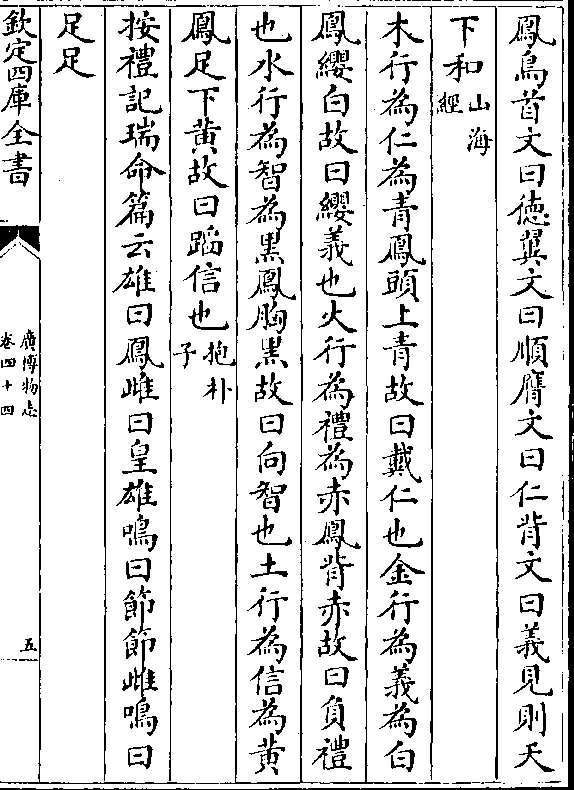 鳳鳥首文曰德翼文曰順膺文曰仁背文曰義見則天
下和山海
經
木行為仁為青鳳頭上青故曰戴仁也金行為義為白
鳳纓白故曰纓義也火行為禮為赤鳳背赤故曰負禮
也水行為智為黒鳳胸黒故曰向智也土行為信為黃
鳳足下黃故曰蹈信也抱朴
子
按禮記瑞命篇云雄曰鳳雌曰皇雄鳴曰節節雌鳴曰
足足
欽定四庫全書
廣博物志
卷四十四
五